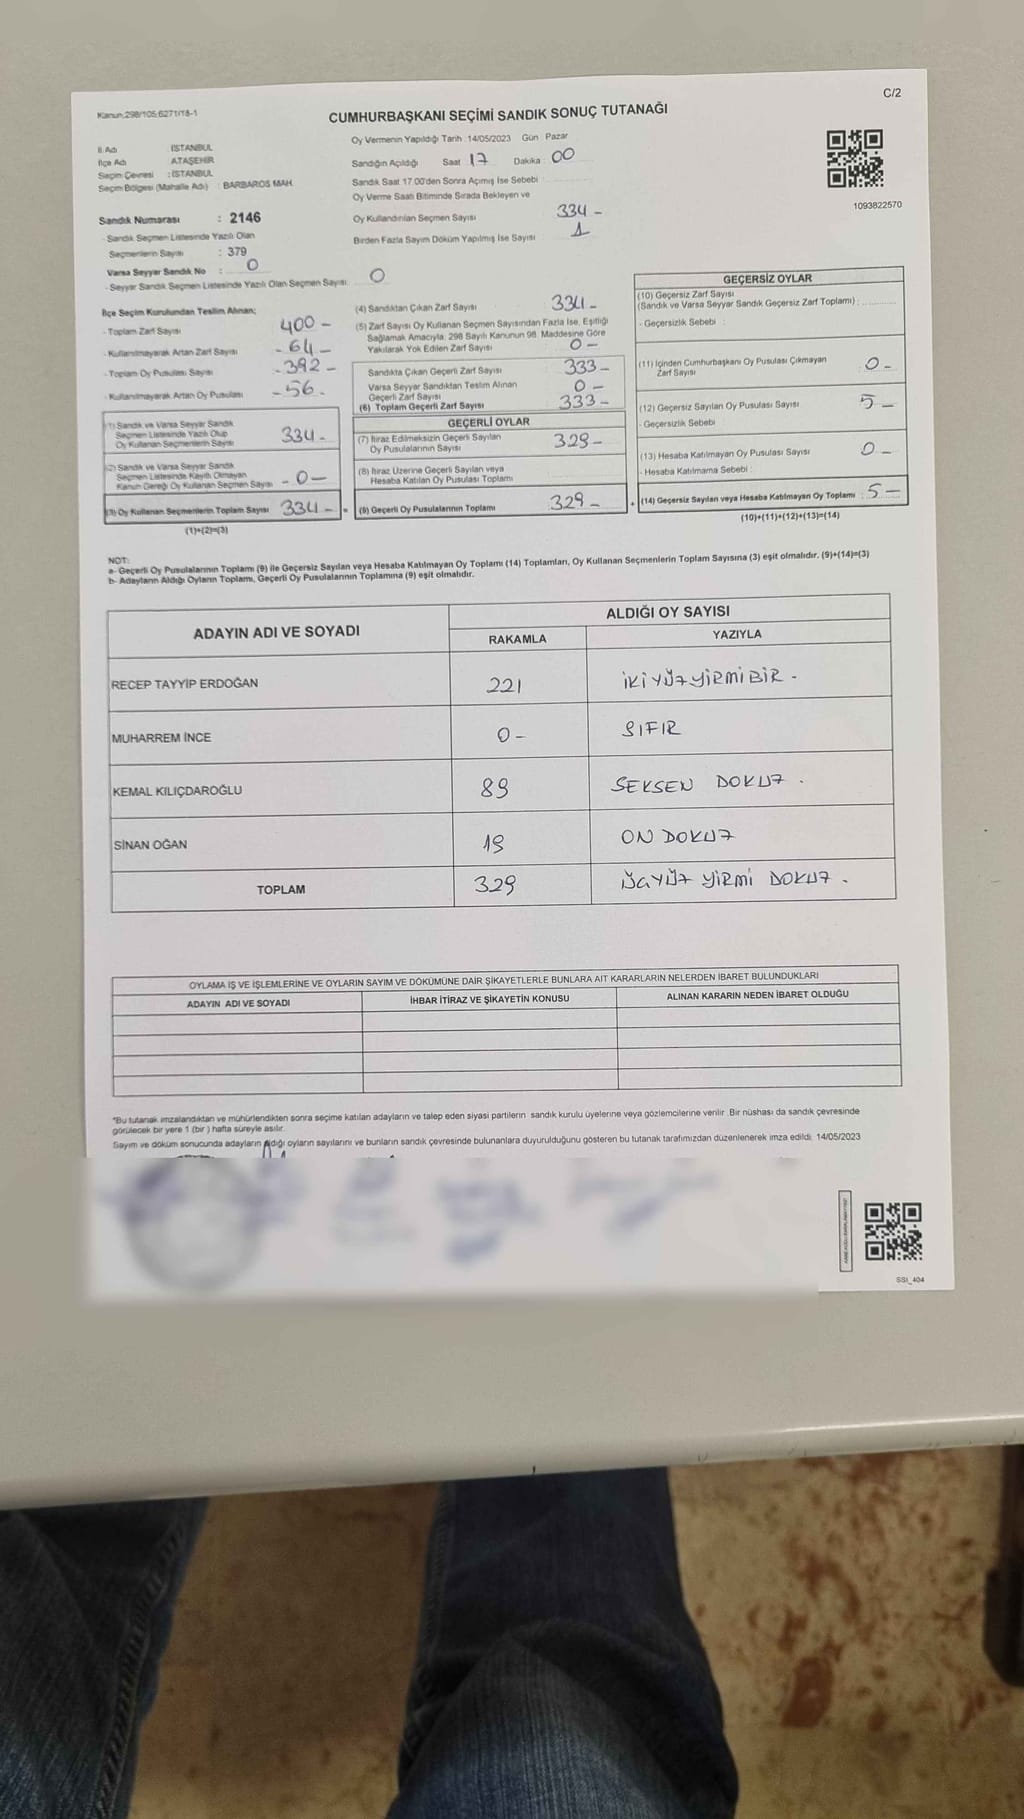 C/2
Kanun:298/105;6271/18-1
CUMHURBAŞKANI SEÇİMİ SANDIK SONUÇ TUTANAĞI
İl Adı : İSTANBUL
İlçe Adı : ATAŞEHİR
Seçim Çevresi : İSTANBUL
Seçim Bölgesi (Mahalle Adı) : BARBAROS MAH.
Sandık Numarası : 2146
- Sandık Seçmen Listesinde Yazılı Olan
Seçmenlerin Sayısı : 379
Varsa Seyyar Sandık No : 0
- Seyyar Sandık Seçmen Listesinde Yazılı Olan Seçmen Sayısı: 0
Oy Vermenin Yapıldığı Tarih :14/05/2023 Gün : Pazar
Sandığın Açıldığı Saat 17 Dakika : 00
Sandık Saat 17.00'den Sonra Açımış İse Sebebi :
Oy Verme Saati Bitiminde Sırada Bekleyen ve
Oy Kullandırılan Seçmen Sayısı 334 -
Birden Fazla Sayım Döküm Yapılmış İse Sayısı : 1
1093822570
İlçe Seçim Kurulundan Teslim Alınan;
- Toplam Zarf Sayısı 400 -
- Kullanılmayarak Artan Zarf Sayısı - 64 -
- Toplam Oy Pusulası Sayısı - 392 -
- Kullanılmayarak Artan Oy Pusulası - 56 -
(1) Sandık ve Varsa Seyyar Sandık
Seçmen Listesinde Yazılı Olup
Oy Kullanan Seçmenlerin Sayısı 334 -
(2) Sandık ve Varsa Seyyar Sandık
Seçmen Listesinde Kayıtlı Olmayan
Kanun Gereği Oy Kullanan Seçmen Sayısı - 0 -
(3) Oy Kullanan Seçmenlerin Toplam Sayısı 334 - =
(1)+(2)=(3)
(4) Sandıktan Çıkan Zarf Sayısı 334 -
(5) Zarf Sayısı Oy Kullanan Seçmen Sayısından Fazla İse, Eşitliği
Sağlamak Amacıyla; 298 Sayılı Kanunun 98. Maddesine Göre
Yakılarak Yok Edilen Zarf Sayısı 0 -
Sandıkta Çıkan Geçerli Zarf Sayısı 333 -
Varsa Seyyar Sandıktan Teslim Alınan
Geçerli Zarf Sayısı 0 -
(6) Toplam Geçerli Zarf Sayısı 333 -
GEÇERLİ OYLAR
(7) İtiraz Edilmeksizin Geçerli Sayılan
Oy Pusulalarının Sayısı 329 -
(8) İtiraz Üzerine Geçerli Sayılan veya
Hesaba Katılan Oy Pusulası Toplamı
(9) Geçerli Oy Pusulalarının Toplamı 329 - +
GEÇERSİZ OYLAR
(10) Geçersiz Zarf Sayısı
(Sandık ve Varsa Seyyar Sandık Geçersiz Zarf Toplamı) :
- Geçersizlik Sebebi :
(11) İçinden Cumhurbaşkanı Oy Pusulası Çıkmayan
Zarf Sayısı 0 -
(12) Geçersiz Sayılan Oy Pusulası Sayısı 5 -
- Geçersizlik Sebebi
(13) Hesaba Katılmayan Oy Pusulası Sayısı 0 -
- Hesaba Katılmama Sebebi :
(14) Geçersiz Sayılan veya Hesaba Katılmayan Oy Toplamı : 5 -
(10)+(11)+(12)+(13)=(14)
NOT:
a- Geçerli Oy Pusulalarının Toplamı (9) ile Geçersiz Sayılan veya Hesaba Katılmayan Oy Toplamı (14) Toplamları, Oy Kullanan Seçmenlerin Toplam Sayısına (3) eşit olmalıdır. (9)+(14)=(3)
b- Adayların Aldığı Oyların Toplamı, Geçerli Oy Pusulalarının Toplamına (9) eşit olmalıdır.
ADAYIN ADI VE SOYADI
ALDIĞI OY SAYISI
RAKAMLA YAZIYLA
RECEP TAYYİP ERDOĞAN 221 İKİ YÜZ YİRMİ BİR -
MUHARREM İNCE 0 - SIFIR
KEMAL KILIÇDAROĞLU 89 SEKSEN DOKUZ .
SİNAN OĞAN 19 ON DOKUZ
TOPLAM 329 ÜÇYÜZ YİRMİ DOKUZ .
OYLAMA İŞ VE İŞLEMLERİNE VE OYLARIN SAYIM VE DÖKÜMÜNE DAİR ŞİKAYETLERLE BUNLARA AİT KARARLARIN NELERDEN İBARET BULUNDUKLARI
ADAYIN ADI VE SOYADI İHBAR İTİRAZ VE ŞİKAYETİN KONUSU ALINAN KARARIN NEDEN İBARET OLDUĞU
*Bu tutanak imzalandıktan ve mühürlendikten sonra seçime katılan adayların ve talep eden siyasi partilerin sandık kurulu üyelerine veya gözlemcilerine verilir. Bir nüshası da sandık çevresinde
görülecek bir yere 1 (bir ) hafta süreyle asılır.
Sayım ve döküm sonucunda adayların aldığı oyların sayılarını ve bunların sandık çevresinde bulunanlara duyurulduğunu gösteren bu tutanak tarafımızdan düzenlenerek imza edildi. 14/05/2023
SSI_404